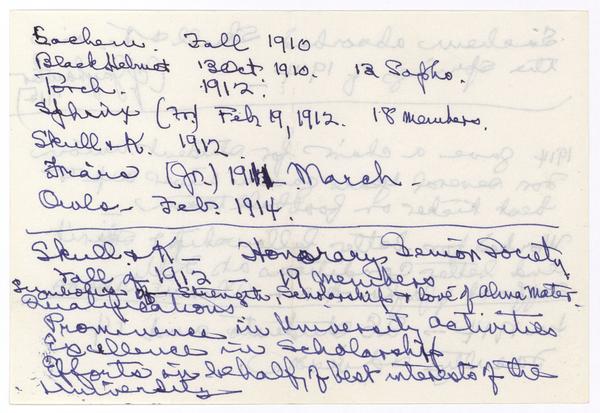 Sachem. Fall 1910
Black Helmet 13 Oct 1910. 13 Sopho.
Torch. 1912.
Sphinx (Jr) Feb 19, 1912. 18 members.
Skull & K. 1912.
Friars (Jr.) 1911 March -
Owls - Feb. 1914.
Skull & K - Honorary Senior Society
Fall of 1912 - 19 members
Symbolism of Strength, Scholarship & Love of Alma Mater.
Qualifications
Prominence in University activities
Excellence in Scholarship
Efforts in behalf of best interests of the
University